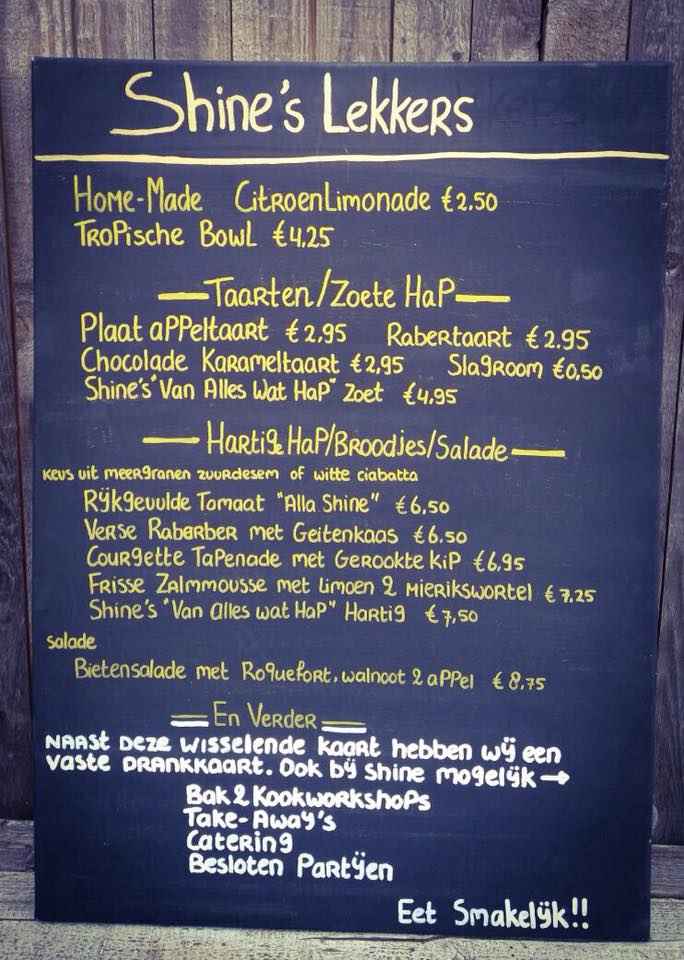 Shine's Lekkers
Home-Made CitroenLimonade €2.50
Tropische Bowl €4.25
Taarten/Zoete Hap
Plaat appeltaart €2,95 Rabertaart €2.95
Chocolade Karameltaart €2,95 Slagroom €0,50
Shine's "Van Alles Wat Hap" Zoet €4,95
Hartige Hap/Broodjes/Salade
Keus uit meergranen zuurdesem of witte ciabatta
Rijkgevulde Tomaat "Alla Shine" €6,50
Verse Rabarber met Geitenkaas €6.50
Courgette Tapenade met Gerookte kip €6,95
Frisse Zalmmousse met Limoen & Mierikswortel €7,25
Shine's "Van alles wat Hap" Hartig €7,50
Salade
Bietensalade met Roquefort, walnoot & appel €8,75
En Verder
Naast deze wisselende kaart hebben wij een
vaste drankkaart. Ook bij Shine mogelijk →
Bak & Kookworkshops
Take-Away's
Catering
Besloten Partijen
Eet Smakelijk!!